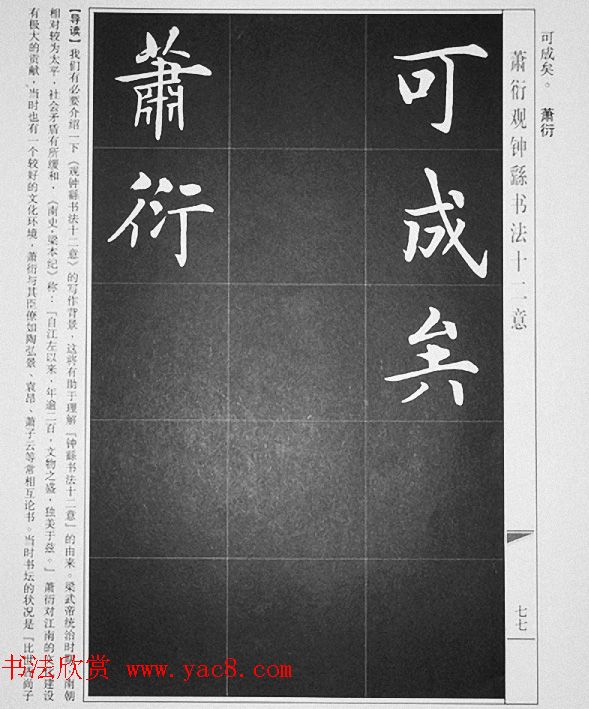 可成矣。 萧衍
萧衍观钟繇书法十二意
七七
可成矣
萧衍
【导读】我们有必要介绍一下《观钟繇书法十二意》的写作背景，这将有助于理解『钟繇书法十二意』的由来。梁武帝统治时期，南朝
相对较为太平，社会矛盾有所缓和，《南史·梁本纪》称：『自江左以来，年逾二百，文物之盛，独美于兹。』萧衍对江南的 建设
有极大的贡献，当时也有一个较好的文化环境，萧衍与其臣僚如陶弘景、袁昂、萧子云等常相互论书。当时书坛的状况是『比世 尚子
书法欣赏 www.yac8.com